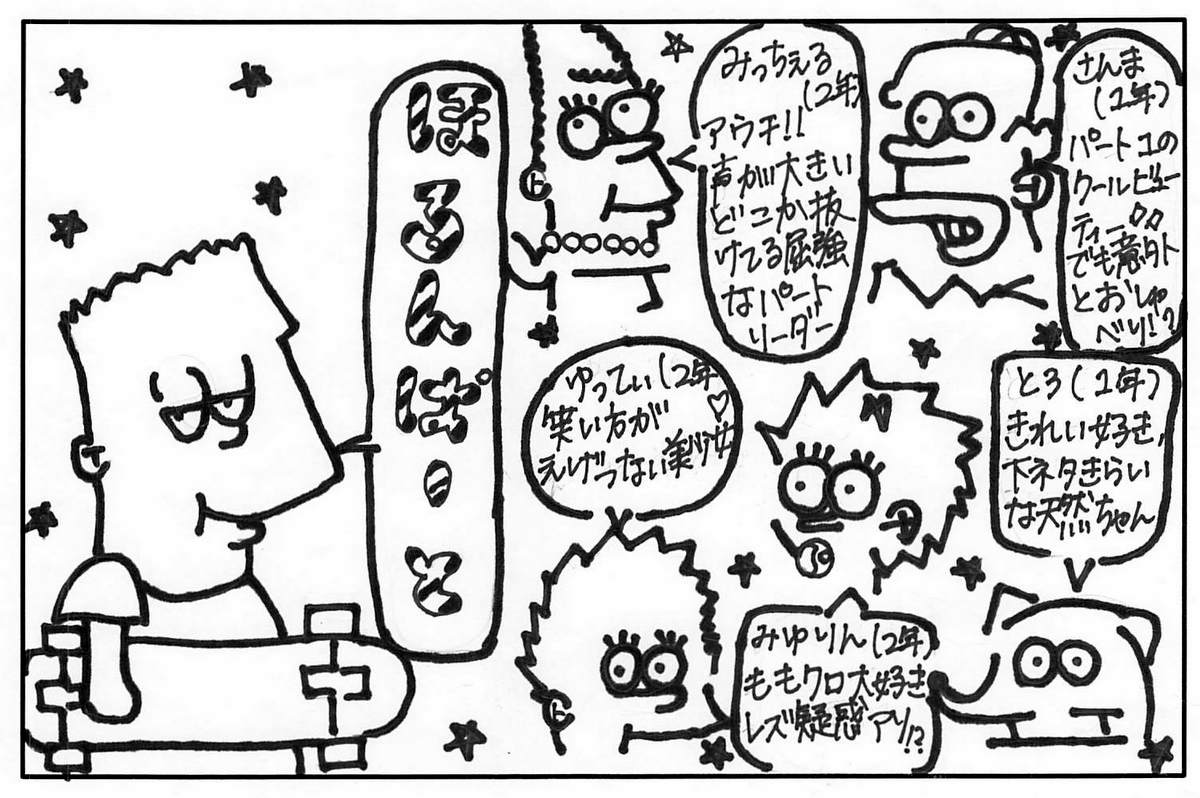 ほるんぱーと
みっちぇる
(2年)
アウチ!!
声が大きい
どこか抜
けてる屈強
なパート
リーダー
さんま
(1年)
パート1の
クールビュー
ティー
でも意外
とおしゃ
べり!?
ゆってぃ(2年
笑い方が♡
えげつない美少女
とろ(1年)
きれい好き、
下ネタきらい
な天然ちゃん
みゆりん(2年)
ももクロ大好き
レズ疑惑アリ!?